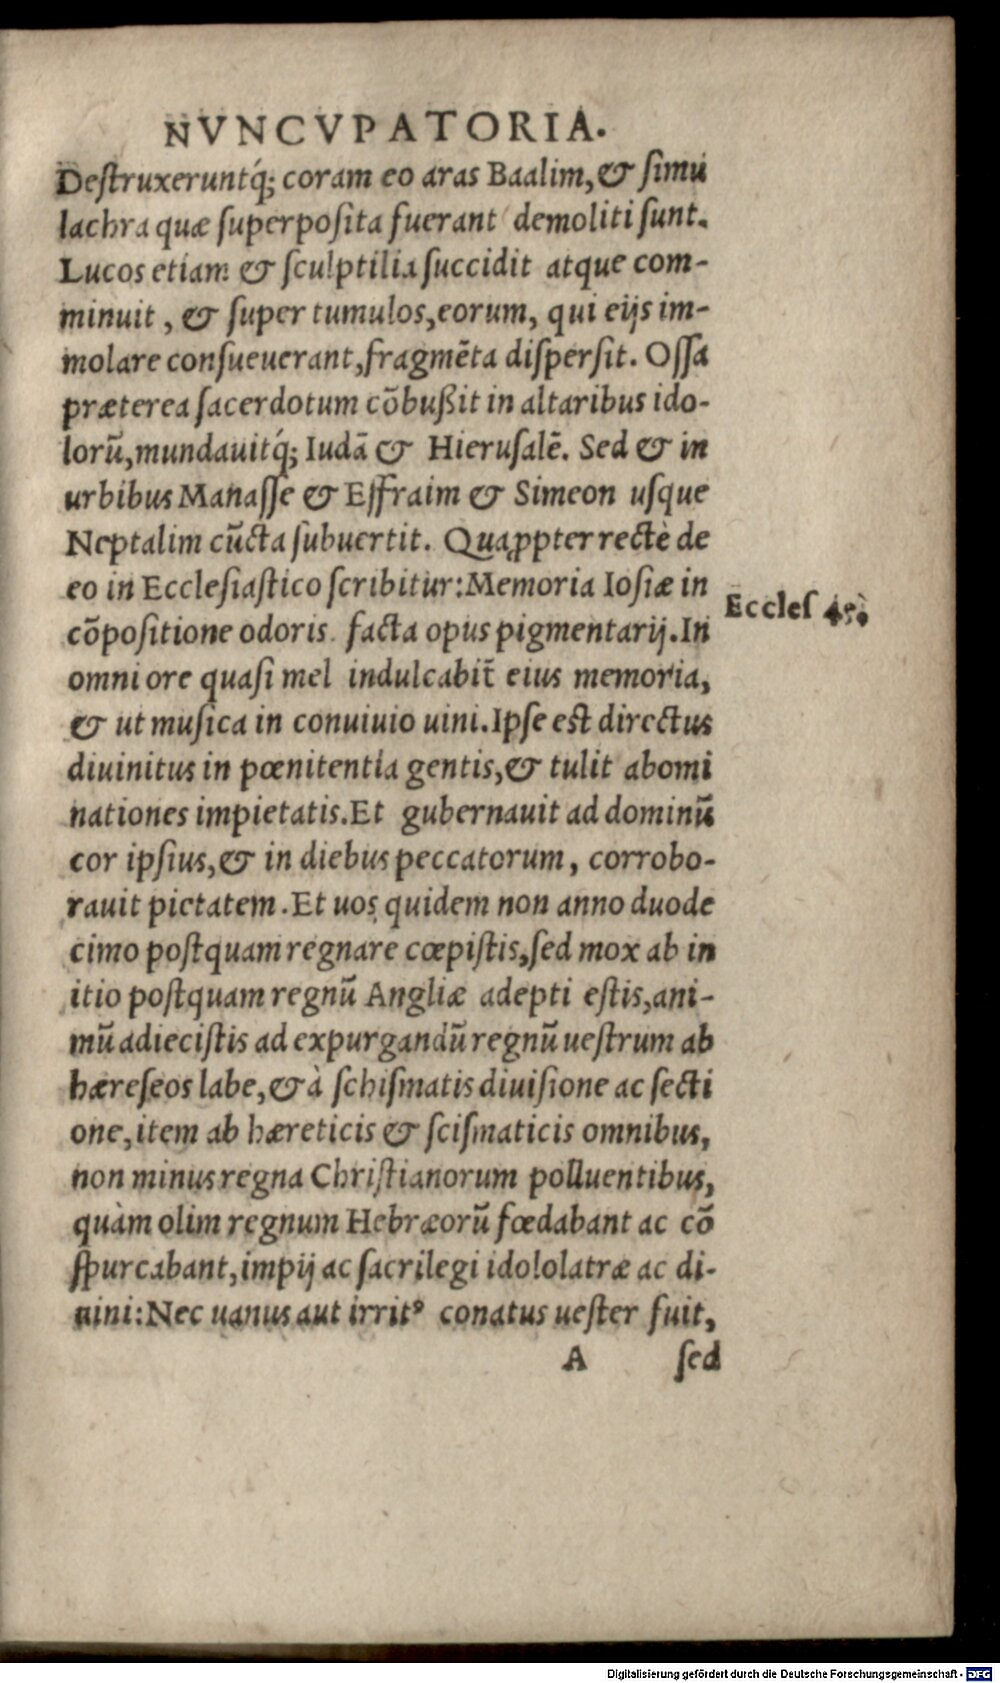 NVNCVPATORIA.
Destruxeruntq́; coram eo aras Baalim, & simu
lachra quæ superposita fuerant demoliti sunt.
Lucos etiam & sculptilia succidit atque com-
minuit, & super tumulos, eorum, qui eijs im-
molare consueuerant, fragmẽta dispersit. Ossa
præterea sacerdotum cõbußit in altaribus ido-
lorũ, mundauitq́; Iudã & Hierusalẽ. Sed & in
urbibus Manasse & Effraim & Simeon usque
Neptalim cũcta subuertit. Quaꝓpter rectè de
eo in Ecclesiastico scribitur: Memoria Iosiæ in
cõpositione odoris facta opus pigmentarij. In
omni ore quasi mel indulcabit̃ eius memoria,
& ut musica in conuiuio uini. Ipse est directus
diuinitus in pœnitentia gentis, & tulit abomi
nationes impietatis. Et gubernauit ad dominũ
cor ipsius, & in diebus peccatorum, corrobo-
rauit pietatem. Et uos quidem non anno duode
cimo postquam regnare cœpistis, sed mox ab in
itio postquam regnũ Angliæ adepti estis, ani-
mũ adiecistis ad expurgandũ regnũ uestrum ab
hæreseos labe, & à schismatis diuisione ac secti
one, item ab hæreticis & scismaticis omnibus,
non minus regna Christianorum polluentibus,
quàm olim regnum Hebræorũ fœdabant ac cõ
spurcabant, impij ac sacrilegi idololatræ ac di-
uini: Nec uanus aut irritꝰ conatus uester fuit,
A sed
Eccles
Digitalisierung gefördert durch die Deutsche Forschungsgemeinschaft - DFG